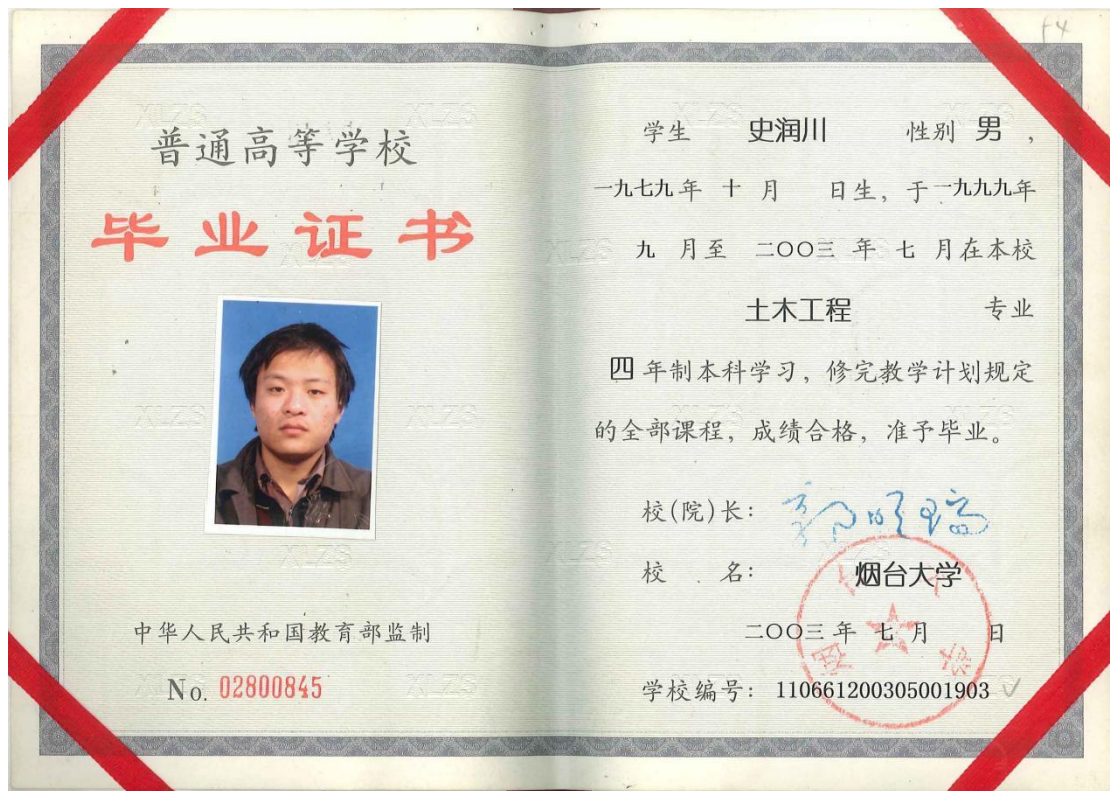 普通高等学校
毕业证书
中华人民共和国教育部监制
No. 02800845
学生 史润川 性别 男，
一九七九年 十 月 日生，于一九九九年
九 月至 二〇〇三 年 七 月在本校
土木工程 专业
四 年制本科学习，修完教学计划规定
的全部课程，成绩合格，准予毕业。
校(院)长：
校 名： 烟台大学
二〇〇三 年 七 月 日
学校编号： 110661200305001903
XLZS